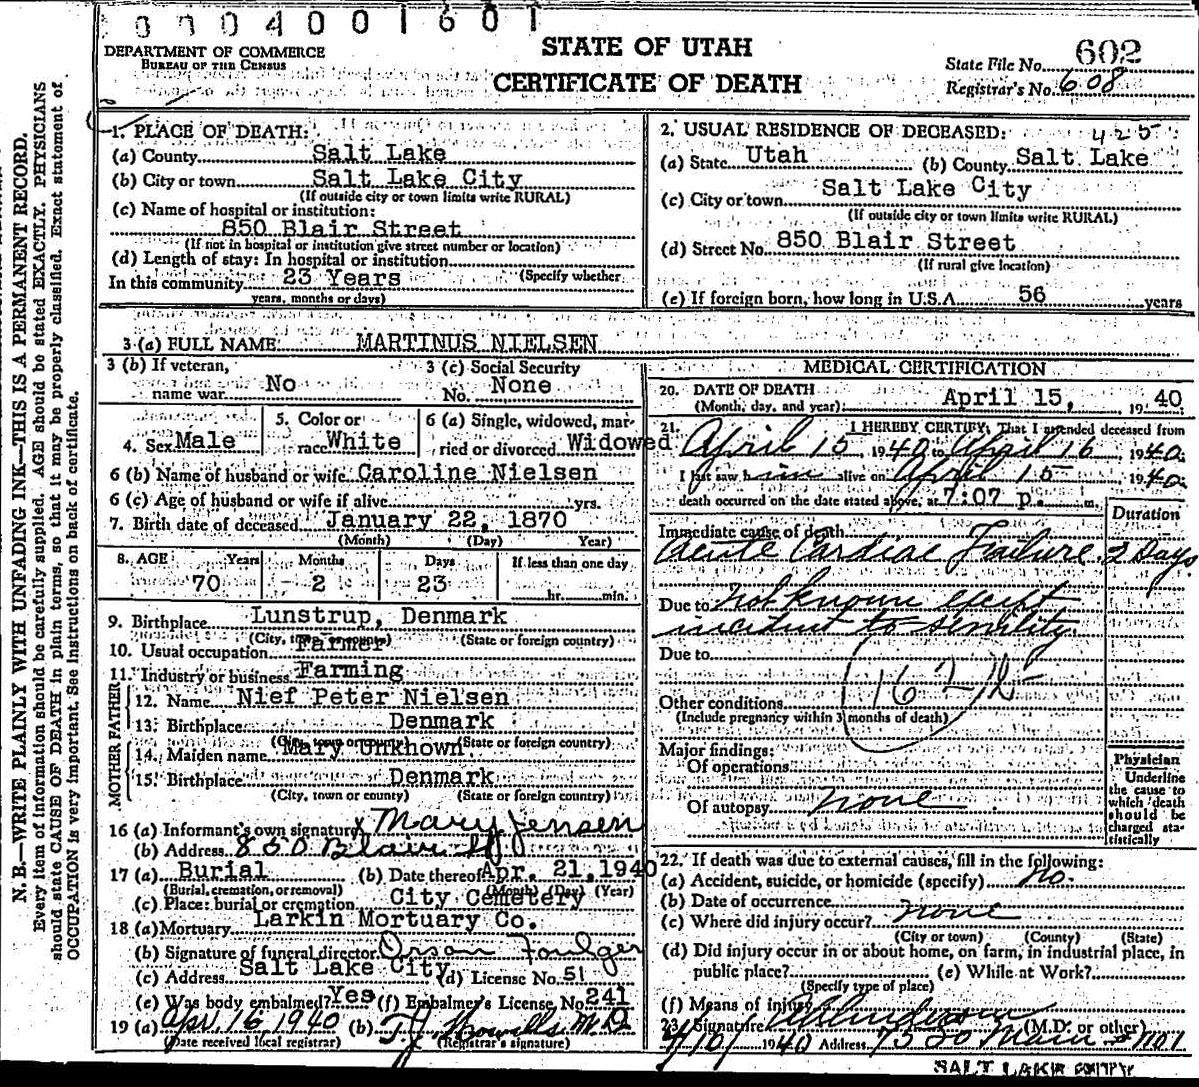 0004001601
DEPARTMENT OF COMMERCE
BUREAU OF THE CENSUS
STATE OF UTAH
CERTIFICATE OF DEATH
State File No. 602
Registrar's No. 608
N. B.—WRITE PLAINLY WITH UNFADING INK—THIS IS A PERMANENT RECORD.
Every item of information should be carefully supplied. AGE should be stated EXACTLY. PHYSICIANS
should state CAUSE OF DEATH in plain terms, so that it may be properly classified. Exact statement of
OCCUPATION is very important. See instructions on back of certificate.
1. PLACE OF DEATH:
(a) County Salt Lake
(b) City or town Salt Lake City
(If outside city or town limits write RURAL)
(c) Name of hospital or institution:
850 Blair Street
(If not in hospital or institution give street number or location)
(d) Length of stay: In hospital or institution
(Specify whether
In this community 23 Years
years, months or days)
2. USUAL RESIDENCE OF DECEASED: 425
(a) State Utah (b) County Salt Lake
(c) City or town Salt Lake City
(If outside city or town limits write RURAL)
(d) Street No. 850 Blair Street
(If rural give location)
(e) If foreign born, how long in U.S.A. 56 years
3 (a) FULL NAME MARTINUS NIELSEN
3 (b) If veteran, name war No
3 (c) Social Security No. None
4. Sex Male
5. Color or race White
6 (a) Single, widowed, married or divorced Widowed
6 (b) Name of husband or wife Caroline Nielsen
6 (c) Age of husband or wife if alive yrs.
7. Birth date of deceased January 22, 1870
(Month) (Day) Year)
8. AGE Years Months Days If less than one day
70 2 23 hr. min.
9. Birthplace Lunstrup, Denmark
(City, town or county) (State or foreign country)
10. Usual occupation Farmer
11. Industry or business Farming
FATHER
12. Name Nief Peter Nielsen
13. Birthplace Denmark
(City, town or county) (State or foreign country)
MOTHER
14. Maiden name Mary Unkhown
15. Birthplace Denmark
(City, town or county) (State or foreign country)
16 (a) Informant's own signature x Mary Jensen
(b) Address 850 Blair St
17 (a) Burial (b) Date thereof Apr. 21, 1940
(Burial, cremation, or removal) (Month) (Day) (Year)
(c) Place: burial or cremation City Cemetery
18 (a) Mortuary Larkin Mortuary Co.
(b) Signature of funeral director Orson Foulger
(c) Address Salt Lake City (d) License No. 51
(e) Was body embalmed? Yes (f) Embalmer's License, No. 241
19 (a) Apr. 16, 1940 (b) T.J. Howells M.D.
(Date received local registrar) (Registrar's signature)
MEDICAL CERTIFICATION
20. DATE OF DEATH
(Month, day, and year) April 15, 1940
21. I HEREBY CERTIFY, That I attended deceased from
April 15 1940 to April 16 1940
I last saw him alive on April 15 1940
death occurred on the date stated above, at 7:07 p. m.
Duration
Immediate cause of death
Acute Cardiac Failure 2 Days
Due to Not known except
incident to senility
Due to
162
Other conditions
(Include pregnancy within 3 months of death)
Major findings:
Of operations
Of autopsy none
Physician
Underline
the cause to
which death
should be
charged sta-
tistically
22. If death was due to external causes, fill in the following:
(a) Accident, suicide, or homicide (specify) No.
(b) Date of occurrence
(c) Where did injury occur? none
(City or town) (County) (State)
(d) Did injury occur in or about home, on farm, in industrial place, in
public place? (e) While at Work?
(Specify type of place)
(f) Means of injury
23. Signature (M.D. or other)
1940 Address Main
SALT LAKE CITY